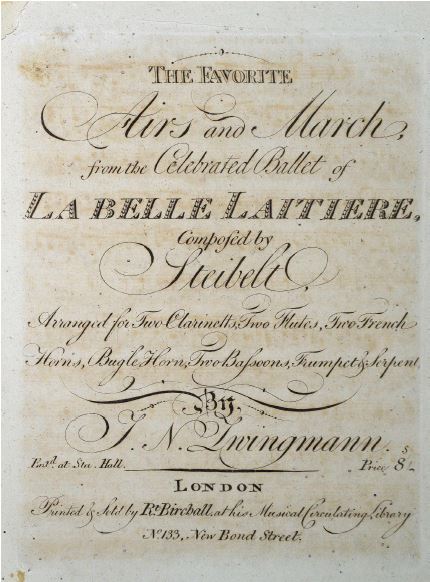 THE FAVORITE
Airs and March,
from the Celebrated Ballet of
LA BELLE LAITIERE,
Composed by
Steibelt,
Arranged for Two Clarinetts, Two Flutes, Two French
Horns, Bugle Horn, Two Bassoons, Trumpet & Serpent,
By
J. N. Zwingmann.
Ent.d at Sta. Hall. Price 8s/-
LONDON
Printed & Sold by Rt. Birchall, at his Musical Circulating Library
No. 133, New Bond Street.